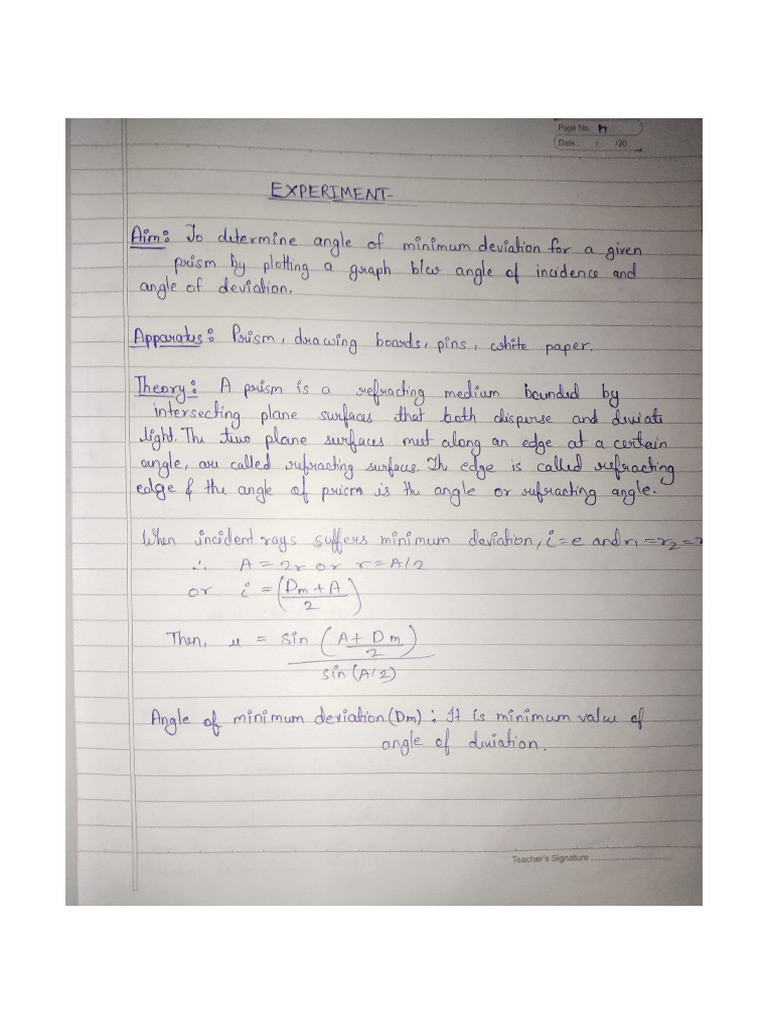 Page No. 17
Date: / /20
EXPERIMENT-
Aim: To determine angle of minimum deviation for a given
prism by plotting a graph b/w angle of incidence and
angle of deviation.
Apparatus: Prism, drawing boards, pins, white paper.
Theory: A prism is a refracting medium bounded by
intersecting plane surfaces that both disperse and deviate
light. The two plane surfaces meet along an edge at a certain
angle, are called refracting surfaces. Th edge is called refracting
edge & the angle of prism is the angle or refracting angle.
When incident rays suffers minimum deviation, i=e and r1=r2=r
∴ A = 2r or r = A/2
or i = (Dm+A / 2)
Then, μ = sin (A+Dm / 2) / sin(A/2)
Angle of minimum deviation (Dm): It is minimum value of
angle of deviation.
Teacher's Signature ..........................